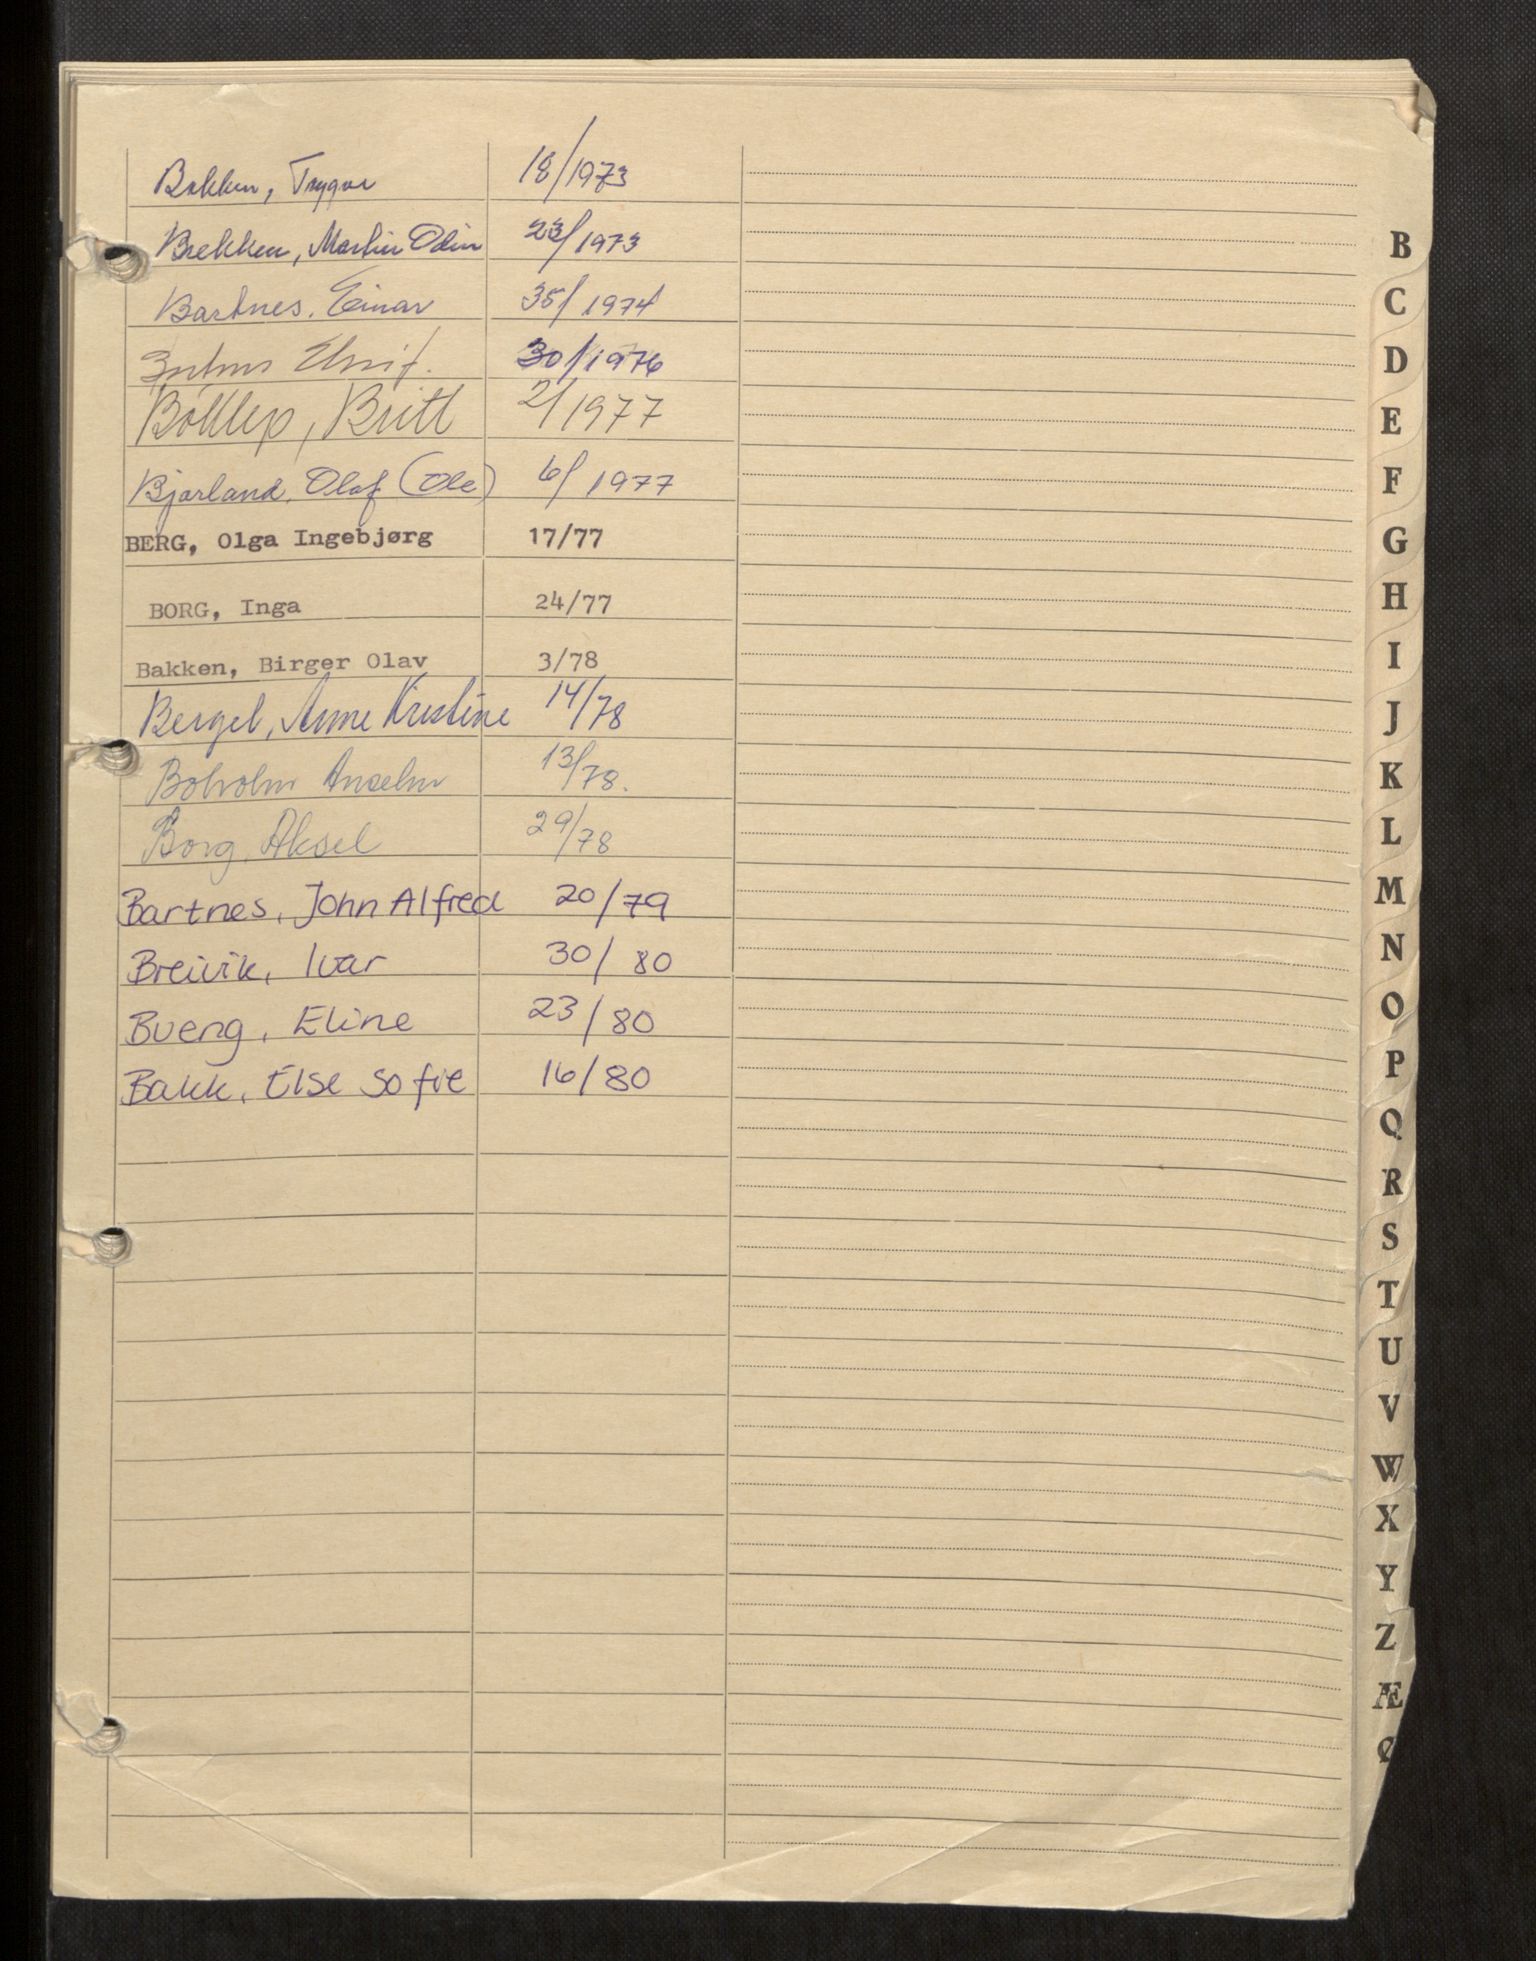 Bakken, Trygve 18/1973
Brekken, Martin Odin 23/1973
Bartnes, Einar 35/1974
30/1976
Britt 2/1977
Bjørland, Olaf (Ole) 6/1977
BERG, Olga Ingebjørg 17/77
BORG, Inga 24/77
Bakken, Birger Olav 3/78
Bergel, Anne Kristine 14/78
Boholm Anselm 13/78.
Borg, Aksel 29/78
Bartnes, John Alfred 20/79
Breivik, Ivar 30/80
Bueng, Eline 23/80
Bakk, Else Sofie 16/80
B
C
D
E
F
G
H
I
J
K
L
M
N
O
P
Q
R
S
T
U
V
W
X
Y
Z
Æ
Ø